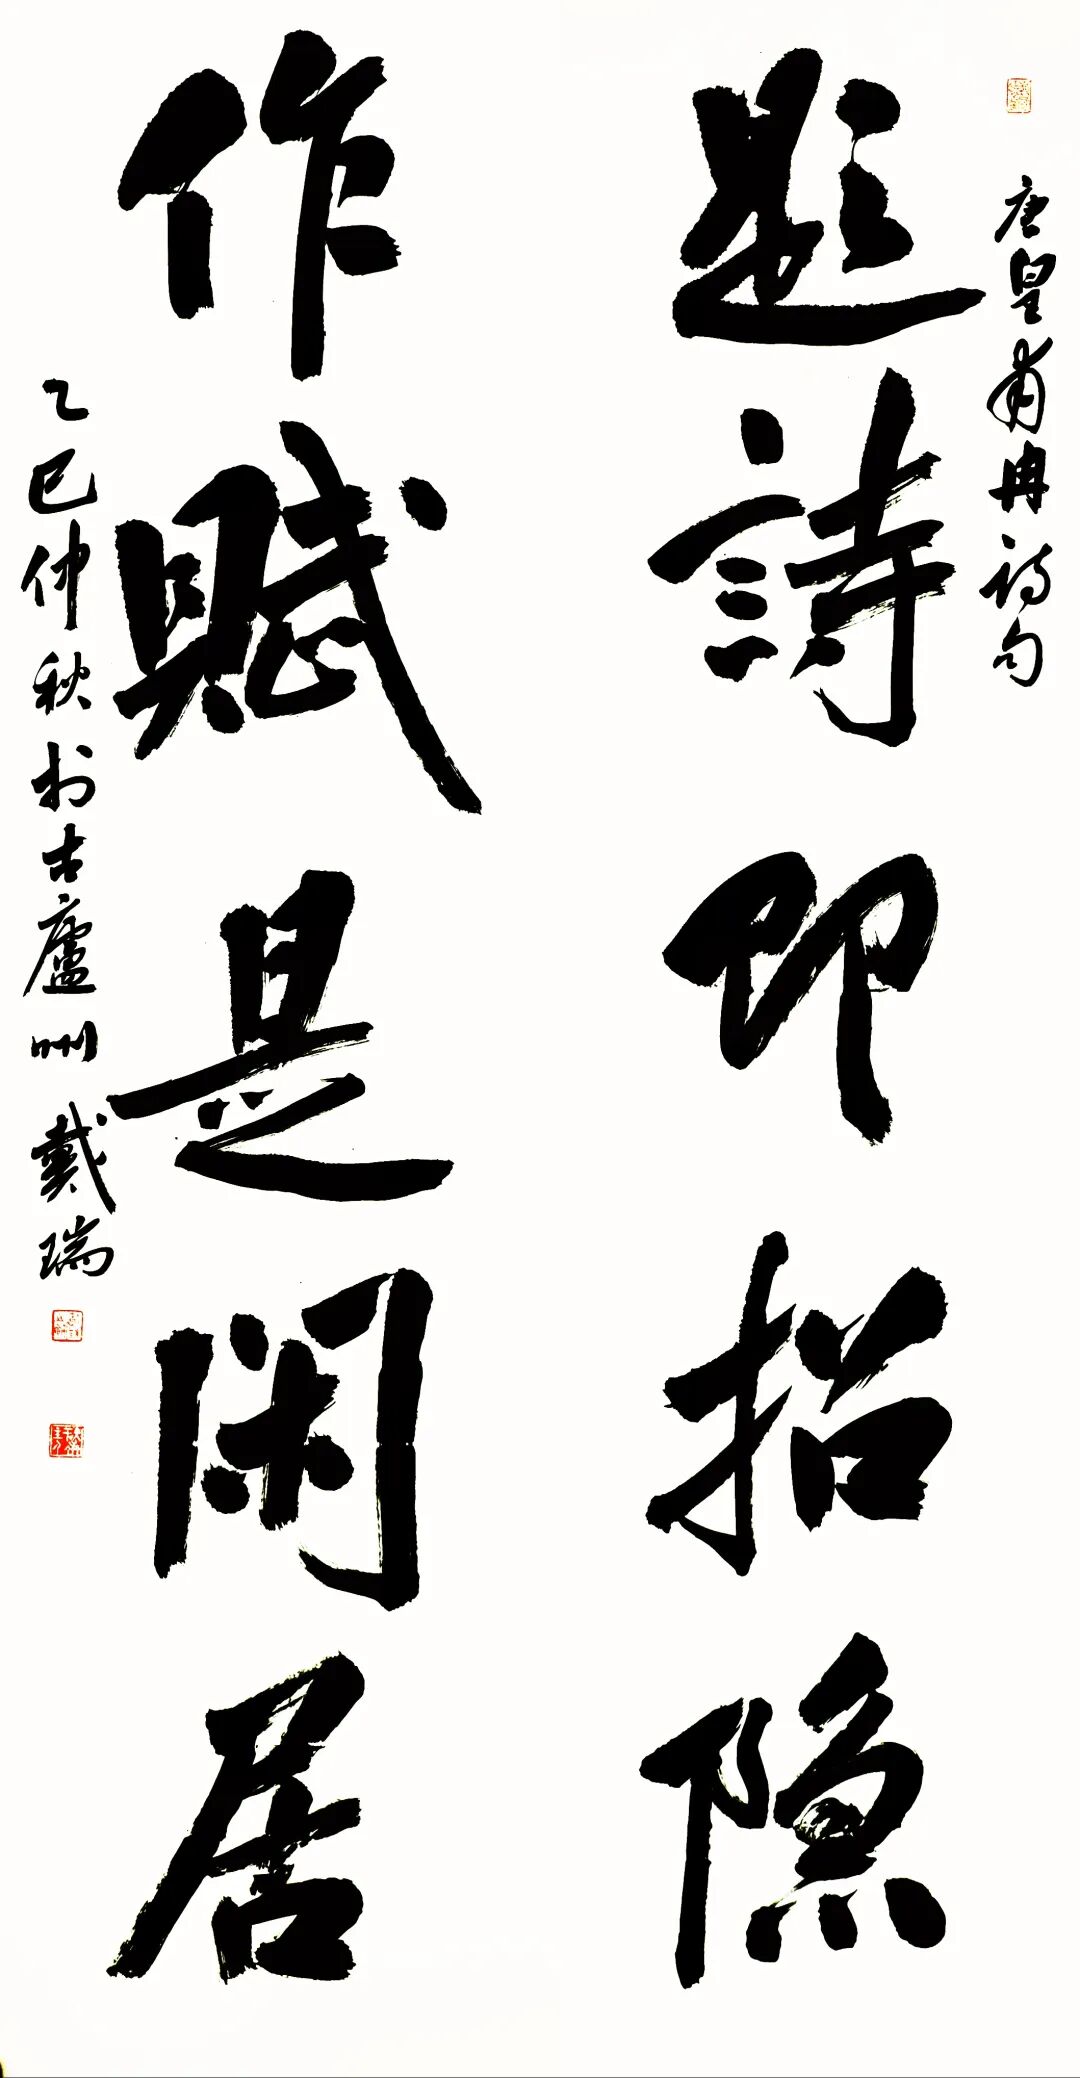 唐皇甫冉诗句
题詩即招隐
作賦是闲居
乙巳仲秋於古廬州戴瑞